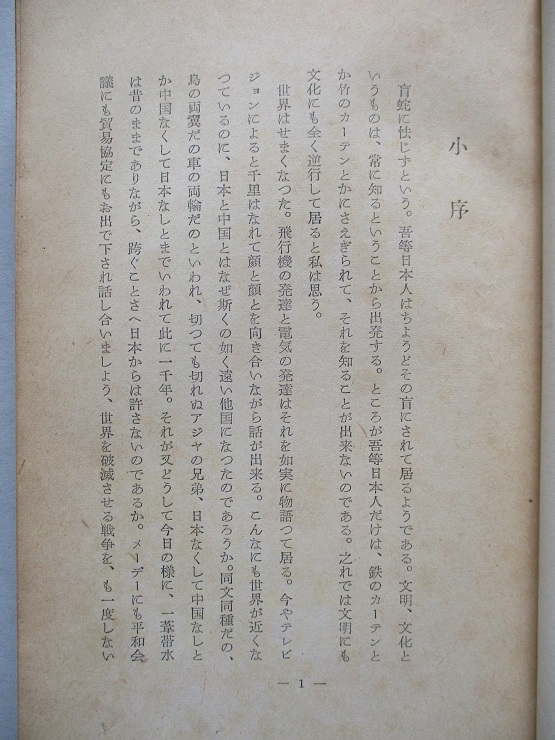 小序
盲蛇に怯じずという。吾等日本人はちようどその盲にされて居るようである。文明、文化と
いうものは、常に知るということから出発する。ところが吾等日本人だけは、鉄のカーテンと
か竹のカーテンとかにさえぎられて、それを知ることが出来ないのである。之れでは文明にも
文化にも全く逆行して居ると私は思う。
世界はせまくなつた。飛行機の発達と電気の発達はそれを如実に物語つて居る。今やテレビ
ジョンによると千里はなれて顔と顔とを向き合いながら話が出来る。こんなにも世界が近くな
つているのに、日本と中国とはなぜ斯くの如く遠い他国になつたのであろうか。同文同種だの、
鳥の両翼だの車の両輪だのといわれ、切つても切れぬアジヤの兄弟、日本なくして中国なしと
か中国なくして日本なしとまでいわれて此に一千年。それが又どうして今日の様に、一葦帯水
は昔のままでありながら、跨ぐことさへ日本からは許さないのであるか。メーデーにも平和会
議にも貿易協定にもお出で下され話し合いましよう、世界を破滅させる戦争を、も一度しない
— 1 —